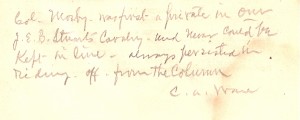 Col. Mosby was first a private in our
J.E.B. Stuarts Cavalry - and never could be
Kept in line - always persisted in
riding - off - from the Column
C. A. Ware